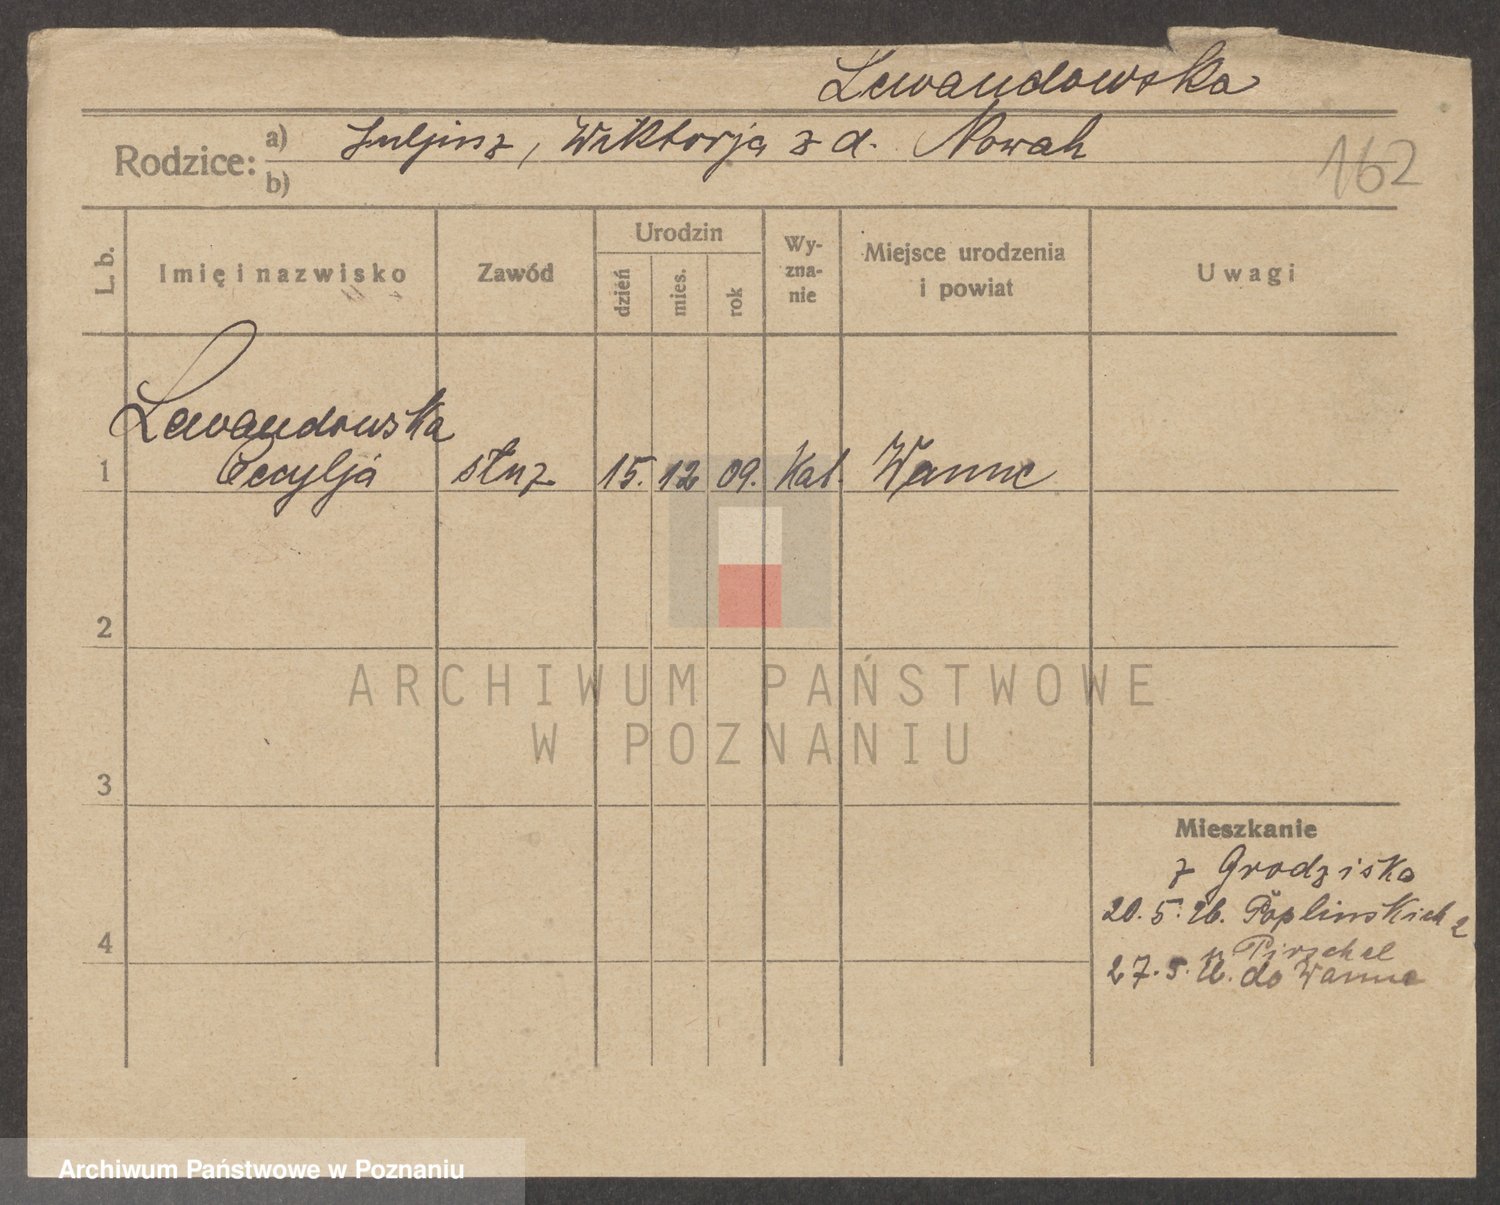 Lewandowska
Rodzice: a) Juljusz, Wiktorja z d. Nowak
b)
162
L. b.
Imię i nazwisko
Zawód
Urodzin
dzień
mies.
rok
Wy-
zna-
nie
Miejsce urodzenia
i powiat
Uwagi
Lewandowska
1 Cecylja służ. 15. 12 09. Kat. Wanne
2
3
4
Mieszkanie
z Grodziska
20. 5. 26. Poplinskich 2
u Pirschel
27. 5. 26. do Wanne
ARCHIWUM PAŃSTWOWE
W POZNANIU
Archiwum Państwowe w Poznaniu